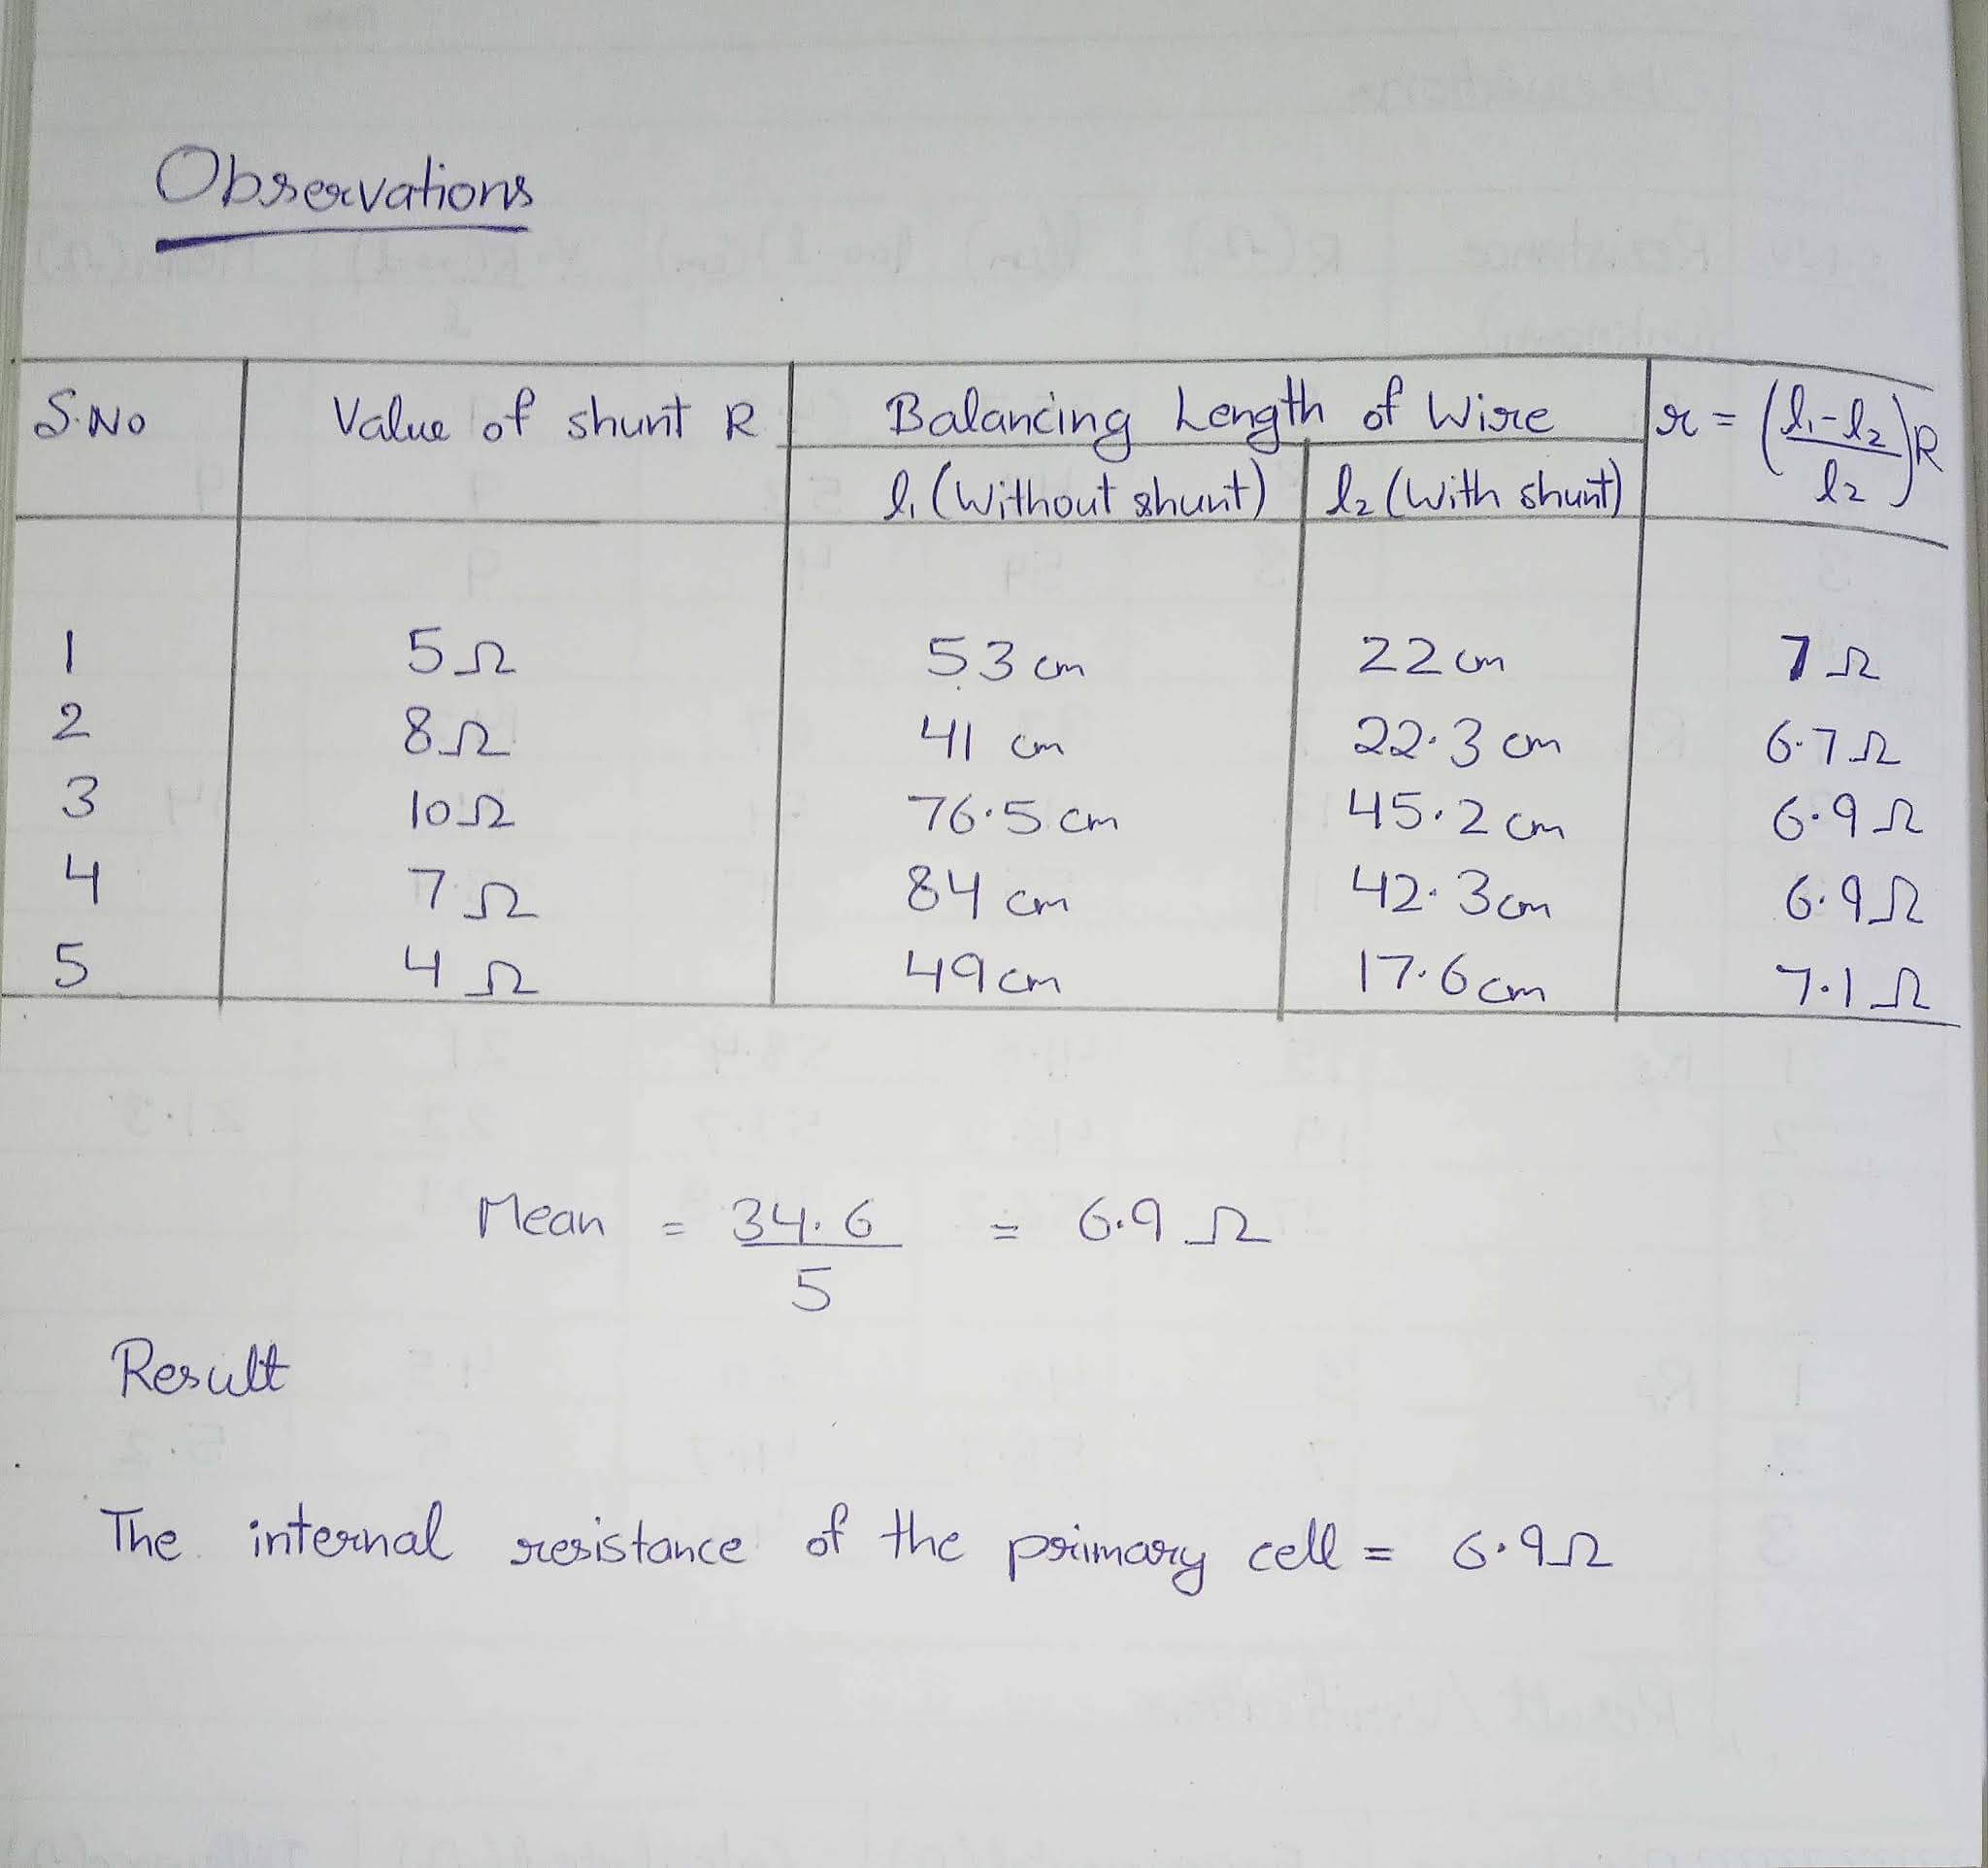 Observations
S.No Value of shunt R Balancing Length of Wire r = (l₁-l₂/l₂)R
l₁ (Without shunt) l₂ (With shunt)
1 5Ω 53 cm 22 cm 7Ω
2 8Ω 41 cm 22.3 cm 6.7Ω
3 10Ω 76.5 cm 45.2 cm 6.9Ω
4 7Ω 84 cm 42.3 cm 6.9Ω
5 4Ω 49 cm 17.6 cm 7.1Ω
Mean = 34.6/5 = 6.9Ω
Result
The internal resistance of the primary cell = 6.9Ω